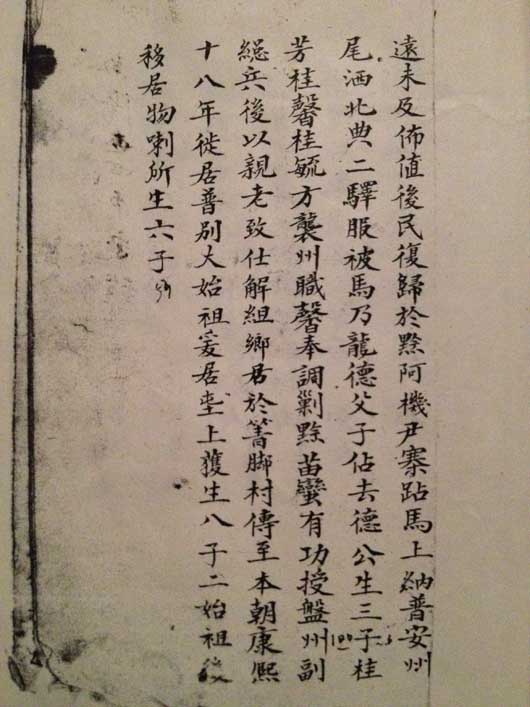 遠未及佈值後民復歸於黔阿機尹寨跕馬上納普安州
尾洒北典二驛服被馬乃龍德父子佔去德公生三子桂
芳桂馨桂毓方襲州職馨奉調剿黔苗蠻有功授盤州副
緫兵後以親老致仕解組鄉居於箐脚村傳至本朝康熙
十八年徙居普别大始祖爰居上獲生八子二始祖後
移居物喇所生六子